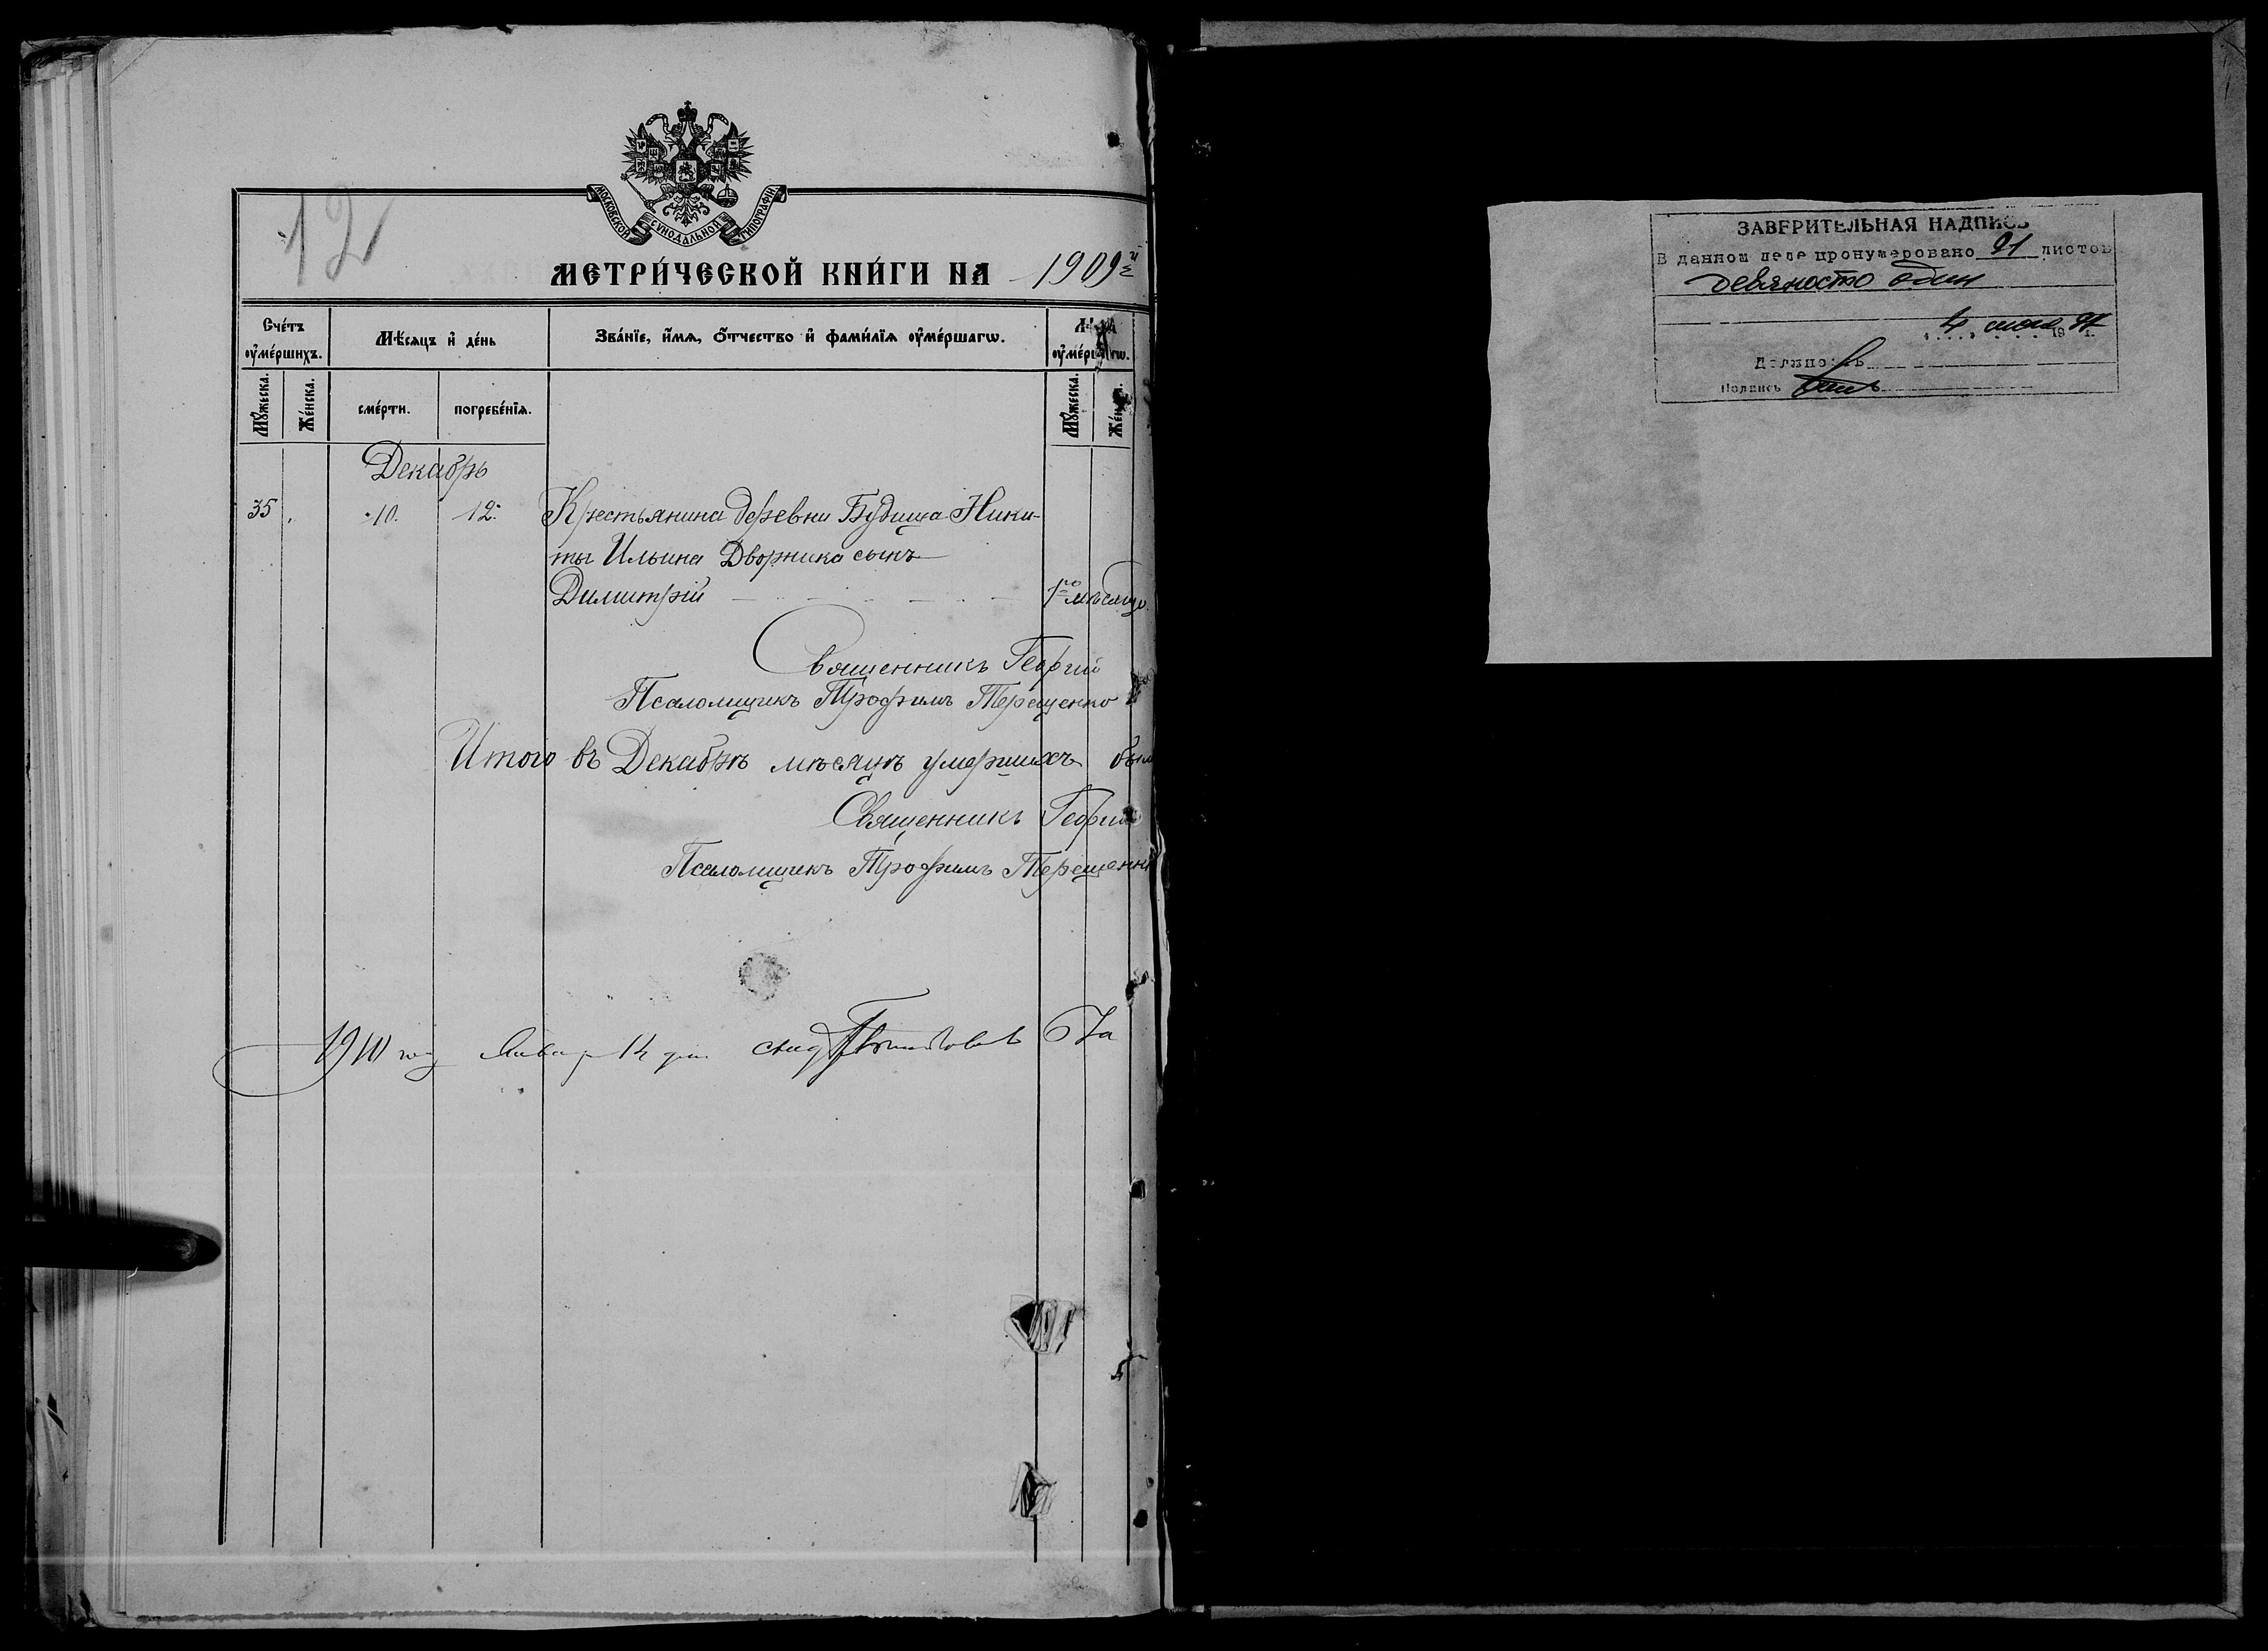 МОСКОВСКОЙ СѴНОДАЛЬНОЙ ТИПОГРАФІИ
12
МЕТРИ́ЧЕСКОЙ КНИ́ГИ НА 1909 й
Сче́тъ оу҆ме́ршихъ.
Мѣ́сяцъ и҆ де́нь
Зва́нїе, и҆́мѧ, ѻ҆́тчество и҆ фами́лїѧ оу҆ме́ршагѡ.
Мꙋ́жеска.
Же́нска.
сме́рти.
погребе́нїѧ.
Мꙋ́жеска.
Декабрь
35
10.
12.
Крестьянина деревни Будища Ники-
ты Ильина Дворника сынъ
Димитрій
1го мѣсяца
Священникъ Георгій
Псаломщикъ Трофимъ Терещенко
Итого въ Декабрѣ мѣсяцѣ умершихъ
Священникъ Георгій
Псаломщикъ Трофимъ Терещенк
1910 14
ЗАВЕРИТЕЛЬНАЯ НАДПИСЬ
В данном деле пронумеровано 91 листов
девяносто один
4 19
Должность
Подпись